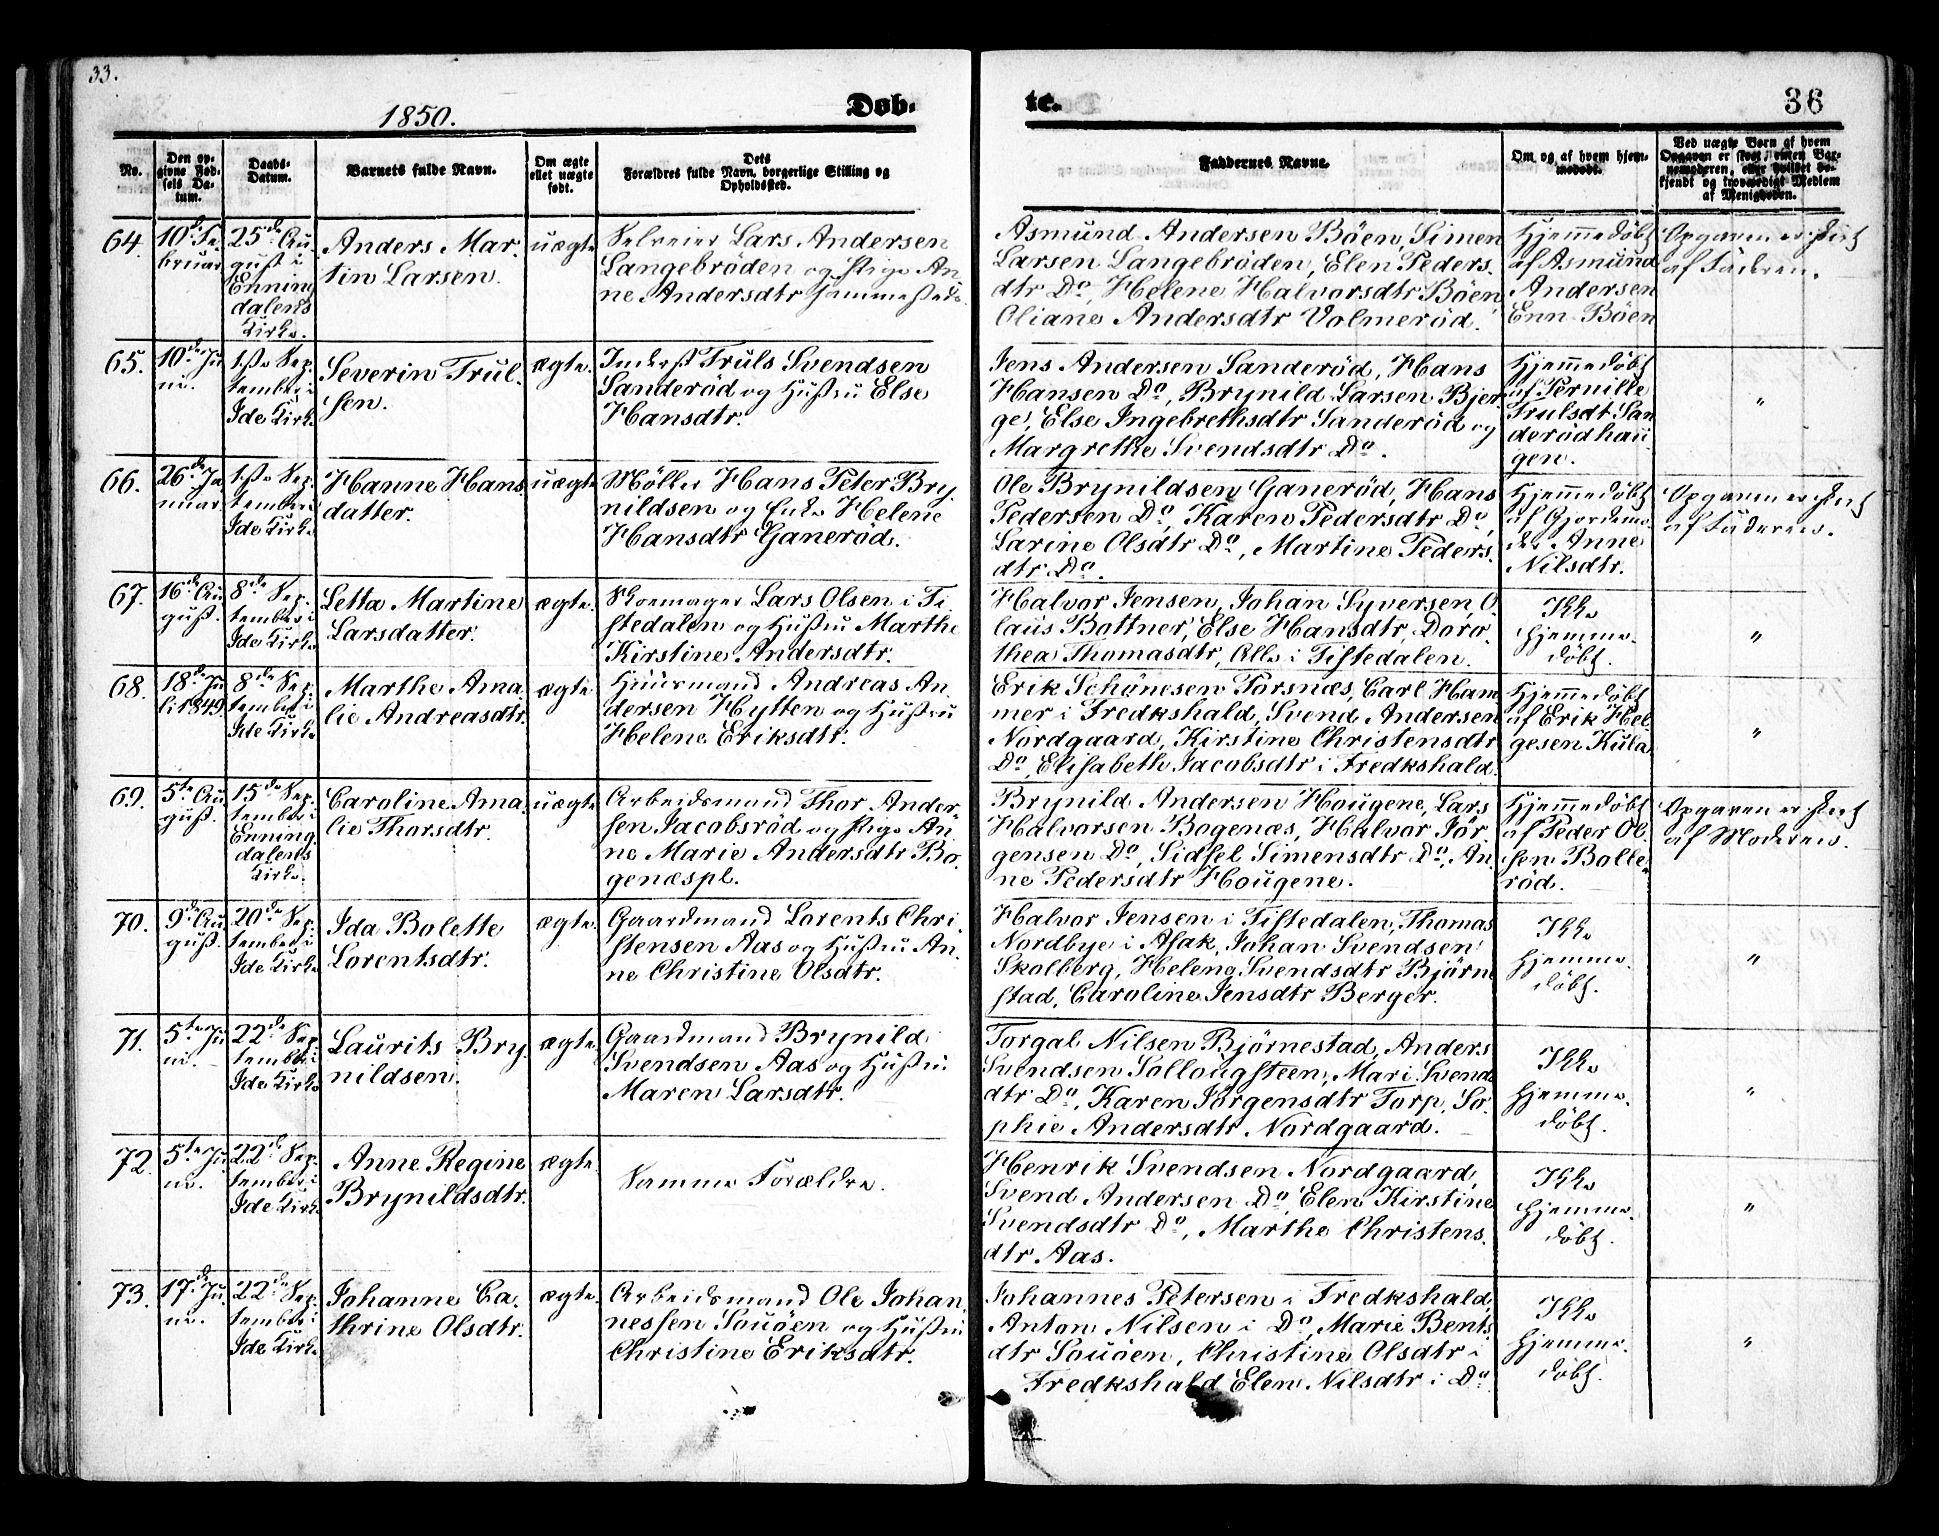 33.
1850.
Døb-
te.
36
No.
Den op-
givne Fød-
sels Da-
tum.
Daabs-
Datum.
Barnets fulde Navn.
Om ægte
ellet uægte
født.
Dets
Forældres fulde Navn, borgerlige Stilling og
Opholdssted.
Faddernes Navne.
Om og af hvem hjem-
medøbt.
Ved uægte Børn af hvem
Opgaven er skeet, enten Bar-
nemoderen, eller hvilket be-
kjendt og troværdigt Medlem
af Menigheden.
64.
10de Fe-
bruar
25de Au-
gust i
Enning
dalens
Kirke.
Anders Mar-
tin Larsen.
uægte
Selveier Lars Andersen
Langebröden og Pige An-
ne Andersdtr sammesteds.
Asmund Andersen Böen, Simen
Larsen Langebröden, Elen Peders-
dtr Do, Helene Halvorsdtr Böen
Oliane Andersdtr Volmeröd.
Hjemmedøbt
af Asmund
Andersen
Enn. Böen
Opgaven er skeet
af Faderen.
65.
10de Ju-
ni.
1ste Sep-
tember i
Ide Kirke
Severin Trul-
sen.
ægte.
Inderst Truls Svendsen
Sanderöd og Hustru Else
Hansdtr.
Jens Andersen Sanderöd, Hans
Hansen Do, Brynild Larsen Bjer-
ge, Else Ingebrethsdtr Sanderöd og
Margrethe Svendsdtr Do.
Hjemmedøbt
af Pernille
Trulsdt San
derödhau
gen.
"
66.
26de Ja
nuar
1ste Sep-
tember i
Ide Kirke
Hanne Hans
datter.
uægte
Møller Hans Peter Bry-
nildsen og Enke Helene
Hansdtr Ganeröd.
Ole Brynildsen Ganeröd, Hans
Pedersen Do, Karen Pedersdtr Do,
Larine Olsdtr Do, Martine Peders.
dtr Do.
Hjemmedøbt
af Gjordemo-
der Anne
Nilsdtr.
Opgaven er skeet
af Faderen.
67.
16de Au
gust.
8de Sep-
tember i
Ide Kirke
Letta Martine
Larsdatter.
ægte.
Skomager Lars Olsen i Ti-
stedalen og Hustru Marthe
Kirstine Andersdtr.
Halvor Jensen, Johan Syversen, O-
laus Bottner, Else Hansdtr, Doro-
thea Thomasdtr, Alle i Tistedalen.
Ikke
hjemme-
døbt.
"
68.
18de Ju
li 1849.
8de Sep-
tember i
Ide Kirke
Marthe Ama
lie Andreasdtr.
ægte
Huusmand Andreas An-
dersen Hytten og Hustru
Helene Eriksdtr.
Erik Schönesen Torsnæs, Carl Ham
mer i Fredkshald, Svend Andersen
Nordgaard, Kirstine Christensdtr
Do, Elisabeth Jacobsdtr i Fredkshald.
Hjemmedøbt
af Erik Hel-
gesen Kula
"
69.
5te Au
gust.
15de Sep-
tember i
Enning
dalens
Kirke.
Caroline Ama
lie Thorsdtr.
uægte
Arbeidsmand Thor Ander-
sen Jacobsröd og Pige An-
ne Marie Andersdtr Bo-
genæspl.
Brynild Andersen Hougene, Lars
Halvorsen Bogenæs, Halvor Jör-
gensen Do, Sidsel Simensdtr Do, An-
ne Pedersdtr Hougene.
Hjemmedøbt
af Peder Ol-
sen Bolle-
röd.
Opgaven er skeet
af Moderen.
70.
9de Au
gust.
20de Sep-
tember i
Ide Kirke
Ida Bolette
Lorentsdtr.
ægte.
Gaardmand Lorents Chri-
stensen Aas og Hustru An-
ne Christine Olsdtr.
Halvor Jensen i Tistedalen, Thomas
Nordbye i Asak, Johan Svendsen
Skolberg, Helene Svendsdtr Björne
stad, Caroline Jensdtr Berger.
Ikke
hjemme-
døbt.
"
71.
5te Ju
ni.
22de Sep-
tember i
Ide Kirke
Laurits Bry
nildsen.
ægte.
Gaardmand Brynild
Svendsen Aas og Hustru
Maren Larsdtr.
Torgal Nilsen Björnestad, Anders
Svendsen Sollougsteen, Mari Svends
dtr Do, Karen Jörgensdtr Torp, So-
phie Andersdtr Nordgaard.
Ikke
hjemme-
døbt.
"
72.
5te Ju
ni.
22de Sep-
tember i
Ide Kirke
Anne Regine
Brynildsdtr.
ægte.
Samme Forældre.
Henrik Svendsen Nordgaard,
Svend Andersen Do, Elen Kirstine
Svendsdtr Do, Marthe Christens-
dtr Aas.
Ikke
hjemme-
døbt.
"
73.
17de Ju-
ni.
22de Sep-
tember i
Ide Kirke
Johanne Ca-
thrine Olsdtr.
ægte.
Arbeidsmand Ole Johan-
nessen Souöen og Hustru
Christine Eriksdtr.
Johannes Petersen i Fredkshald,
Anton Nilsen i Do, Marie Bents
dtr Souöen, Christine Olsdtr i
Fredkshald Elen Nilsdtr i Do.
Ikke
hjemme-
døbt.
"